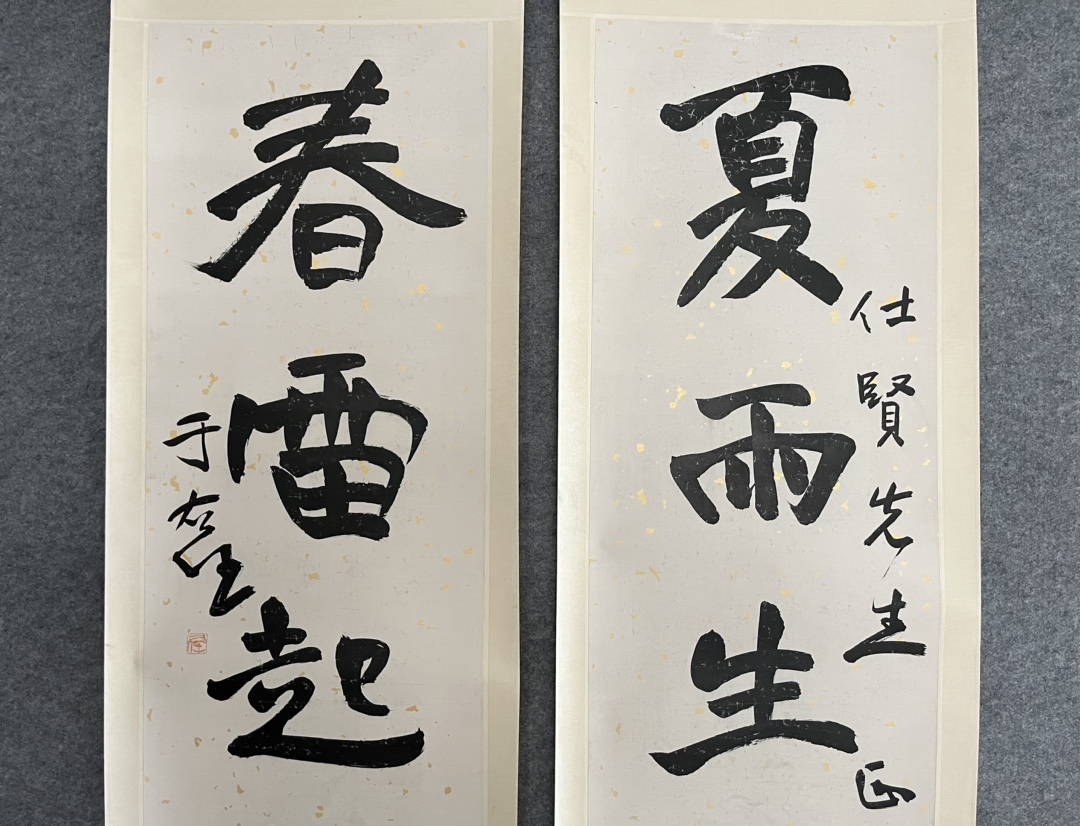 仕賢先生正
夏雨生
春雷起
于右任